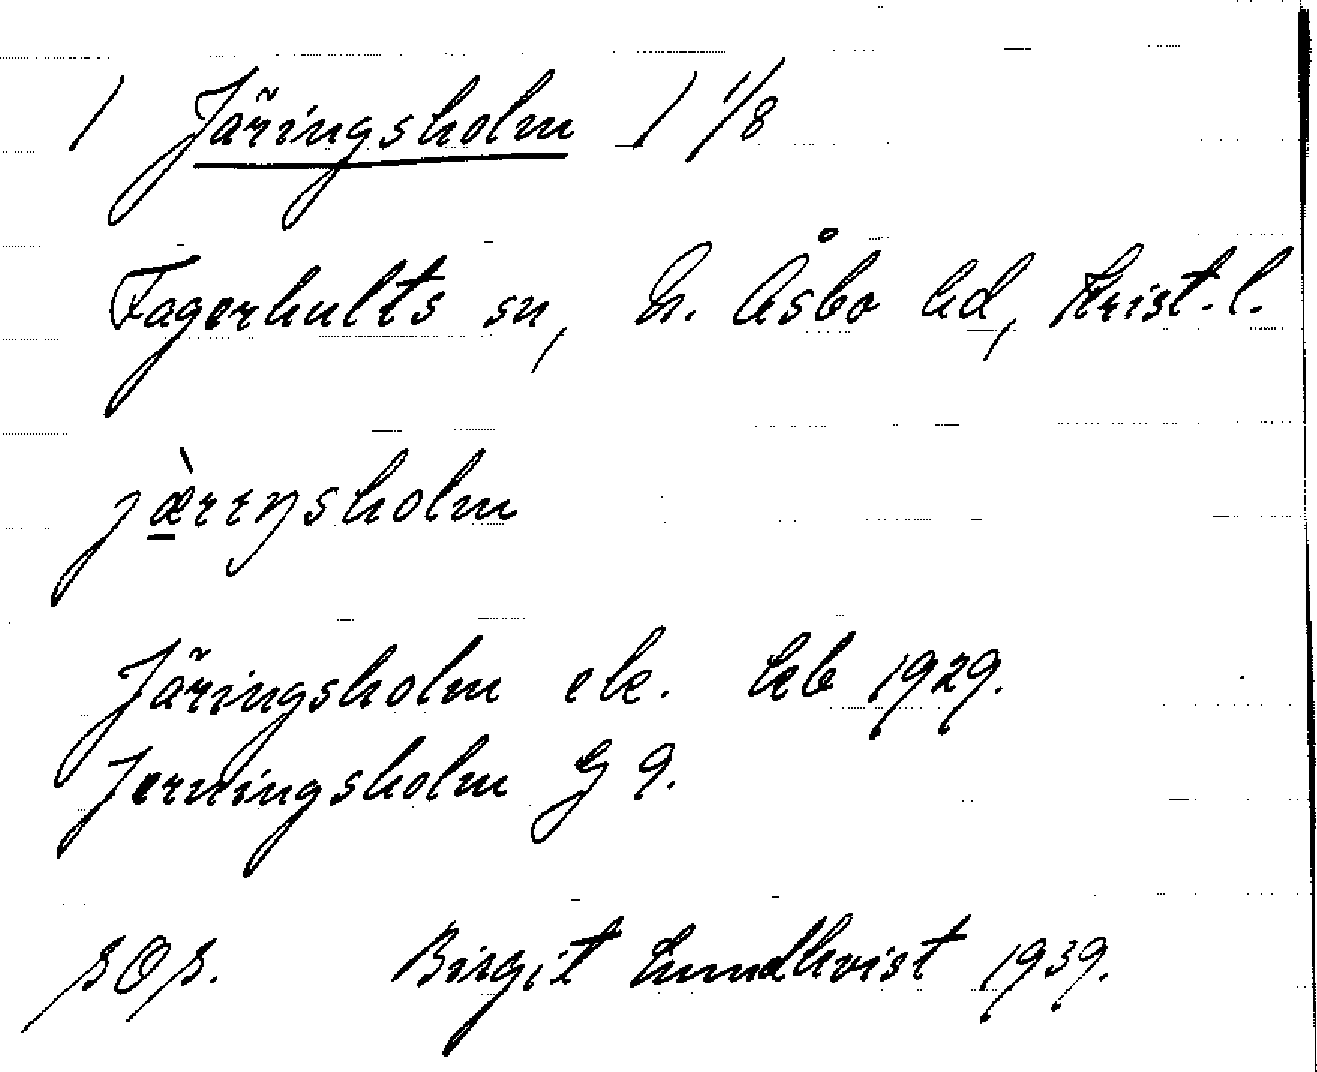 / Järingsholm / 1/8
Fagerhults sn, N. Åsbo hd, Krist. l.
jæ̀rɪŋsholm
Järingsholm ek. kb 1929.
Jerningsholm G 9.
SOS. Birgit Lundkvist 1939.